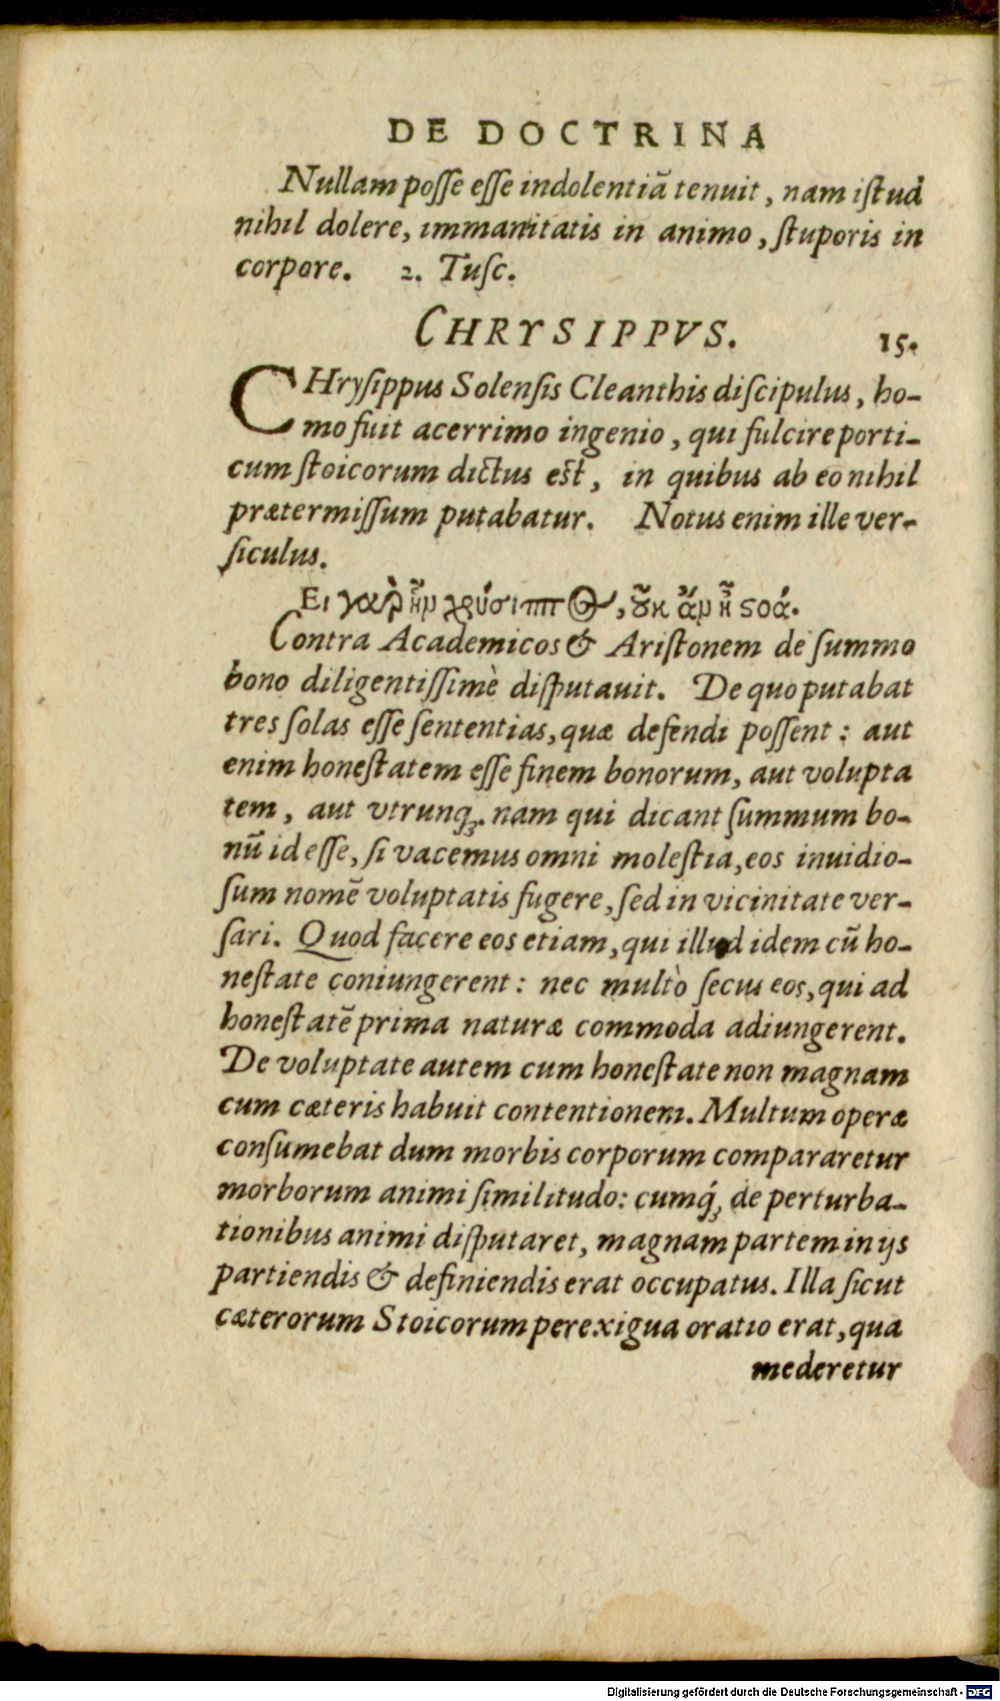 DE DOCTRINA
Nullam poſſe eſſe indolentiā tenuit, nam iſtud
nihil dolere, immanitatis in animo, ſtuporis in
corpore. 2. Tuſc.
CHRYSIPPVS. 15.
CHryſippus Solenſis Cleanthis diſcipulus, ho-
mo fuit acerrimo ingenio, qui fulcire porti-
cum ſtoicorum dictus eſt, in quibus ab eo nihil
prætermiſſum putabatur. Notus enim ille ver-
ſiculus.
Ει γαρ̀ ἦν χρύσιππος, οὐκ ἂν ἦ ςοά.
Contra Academicos & Ariſtonem de ſummo
bono diligentiſſimè diſputauit. De quo putabat
tres ſolas eſſe ſententias, quæ defendi poſſent: aut
enim honeſtatem eſſe finem bonorum, aut volupta
tem, aut vtrunq;. nam qui dicant ſummum bo-
nū id eſſe, ſi vacemus omni moleſtia, eos inuidio-
ſum nomē voluptatis fugere, ſed in vicinitate ver-
ſari. Quod facere eos etiam, qui illud idem cū ho-
neſtate coniungerent: nec multò ſecus eos, qui ad
honeſtatē prima naturæ commoda adiungerent.
De voluptate autem cum honeſtate non magnam
cum cæteris habuit contentionem. Multum operæ
conſumebat dum morbis corporum compararetur
morborum animi ſimilitudo: cumq́; de perturba-
tionibus animi diſputaret, magnam partem in ijs
partiendis & definiendis erat occupatus. Illa ſicut
cæterorum Stoicorum perexigua oratio erat, qua
mederetur
Digitalisierung gefördert durch die Deutsche Forschungsgemeinschaft - DFG